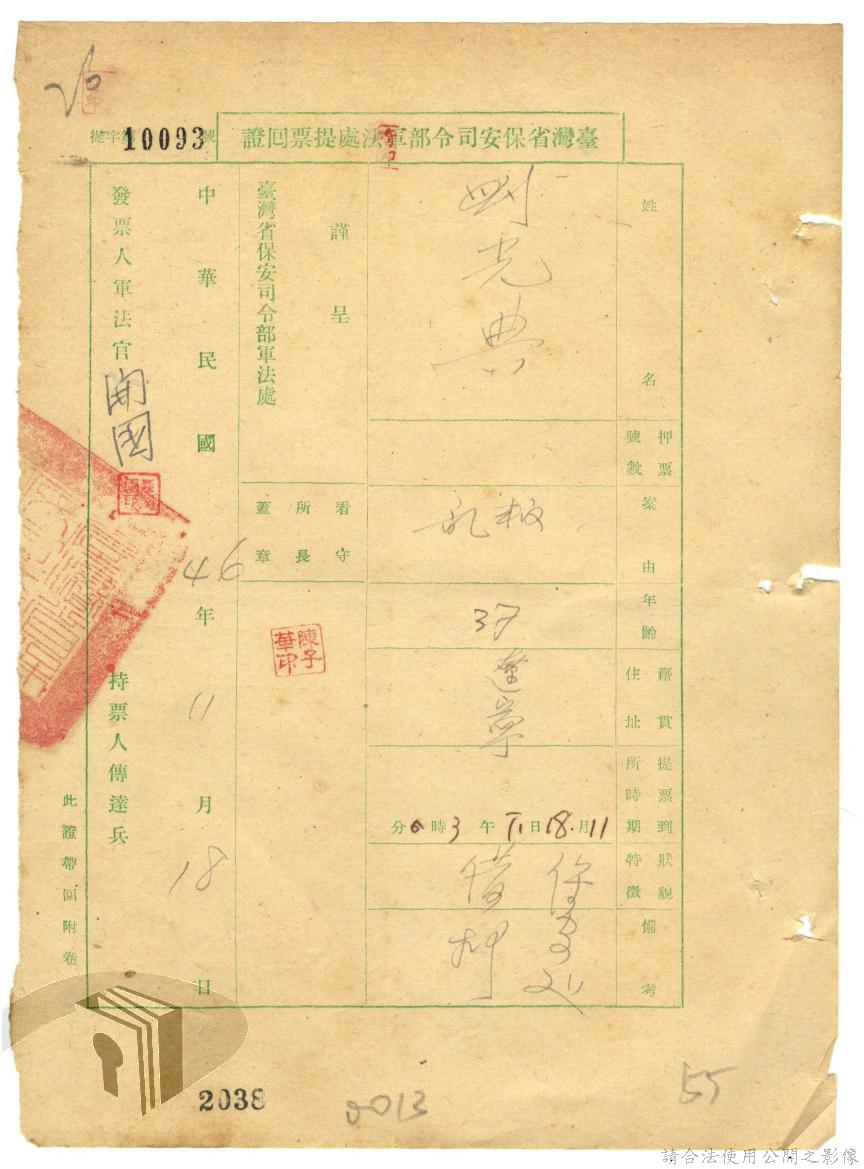 臺灣省保安司令部軍法處提票回證
提字第10093號
姓名
劉光典
押票號數
案由
叛亂
年齡
37
籍貫住址
遼寧
提票到所時期
11月18日下午3時0分
狀貌特徵
備考
保安處
借押
謹呈
臺灣省保安司令部軍法處
看守所長蓋章
陳子華印
中華民國46年11月18日
發票人軍法官
持票人傳達兵
此證帶回附卷
2038
0013
55
請合法使用公開之影像